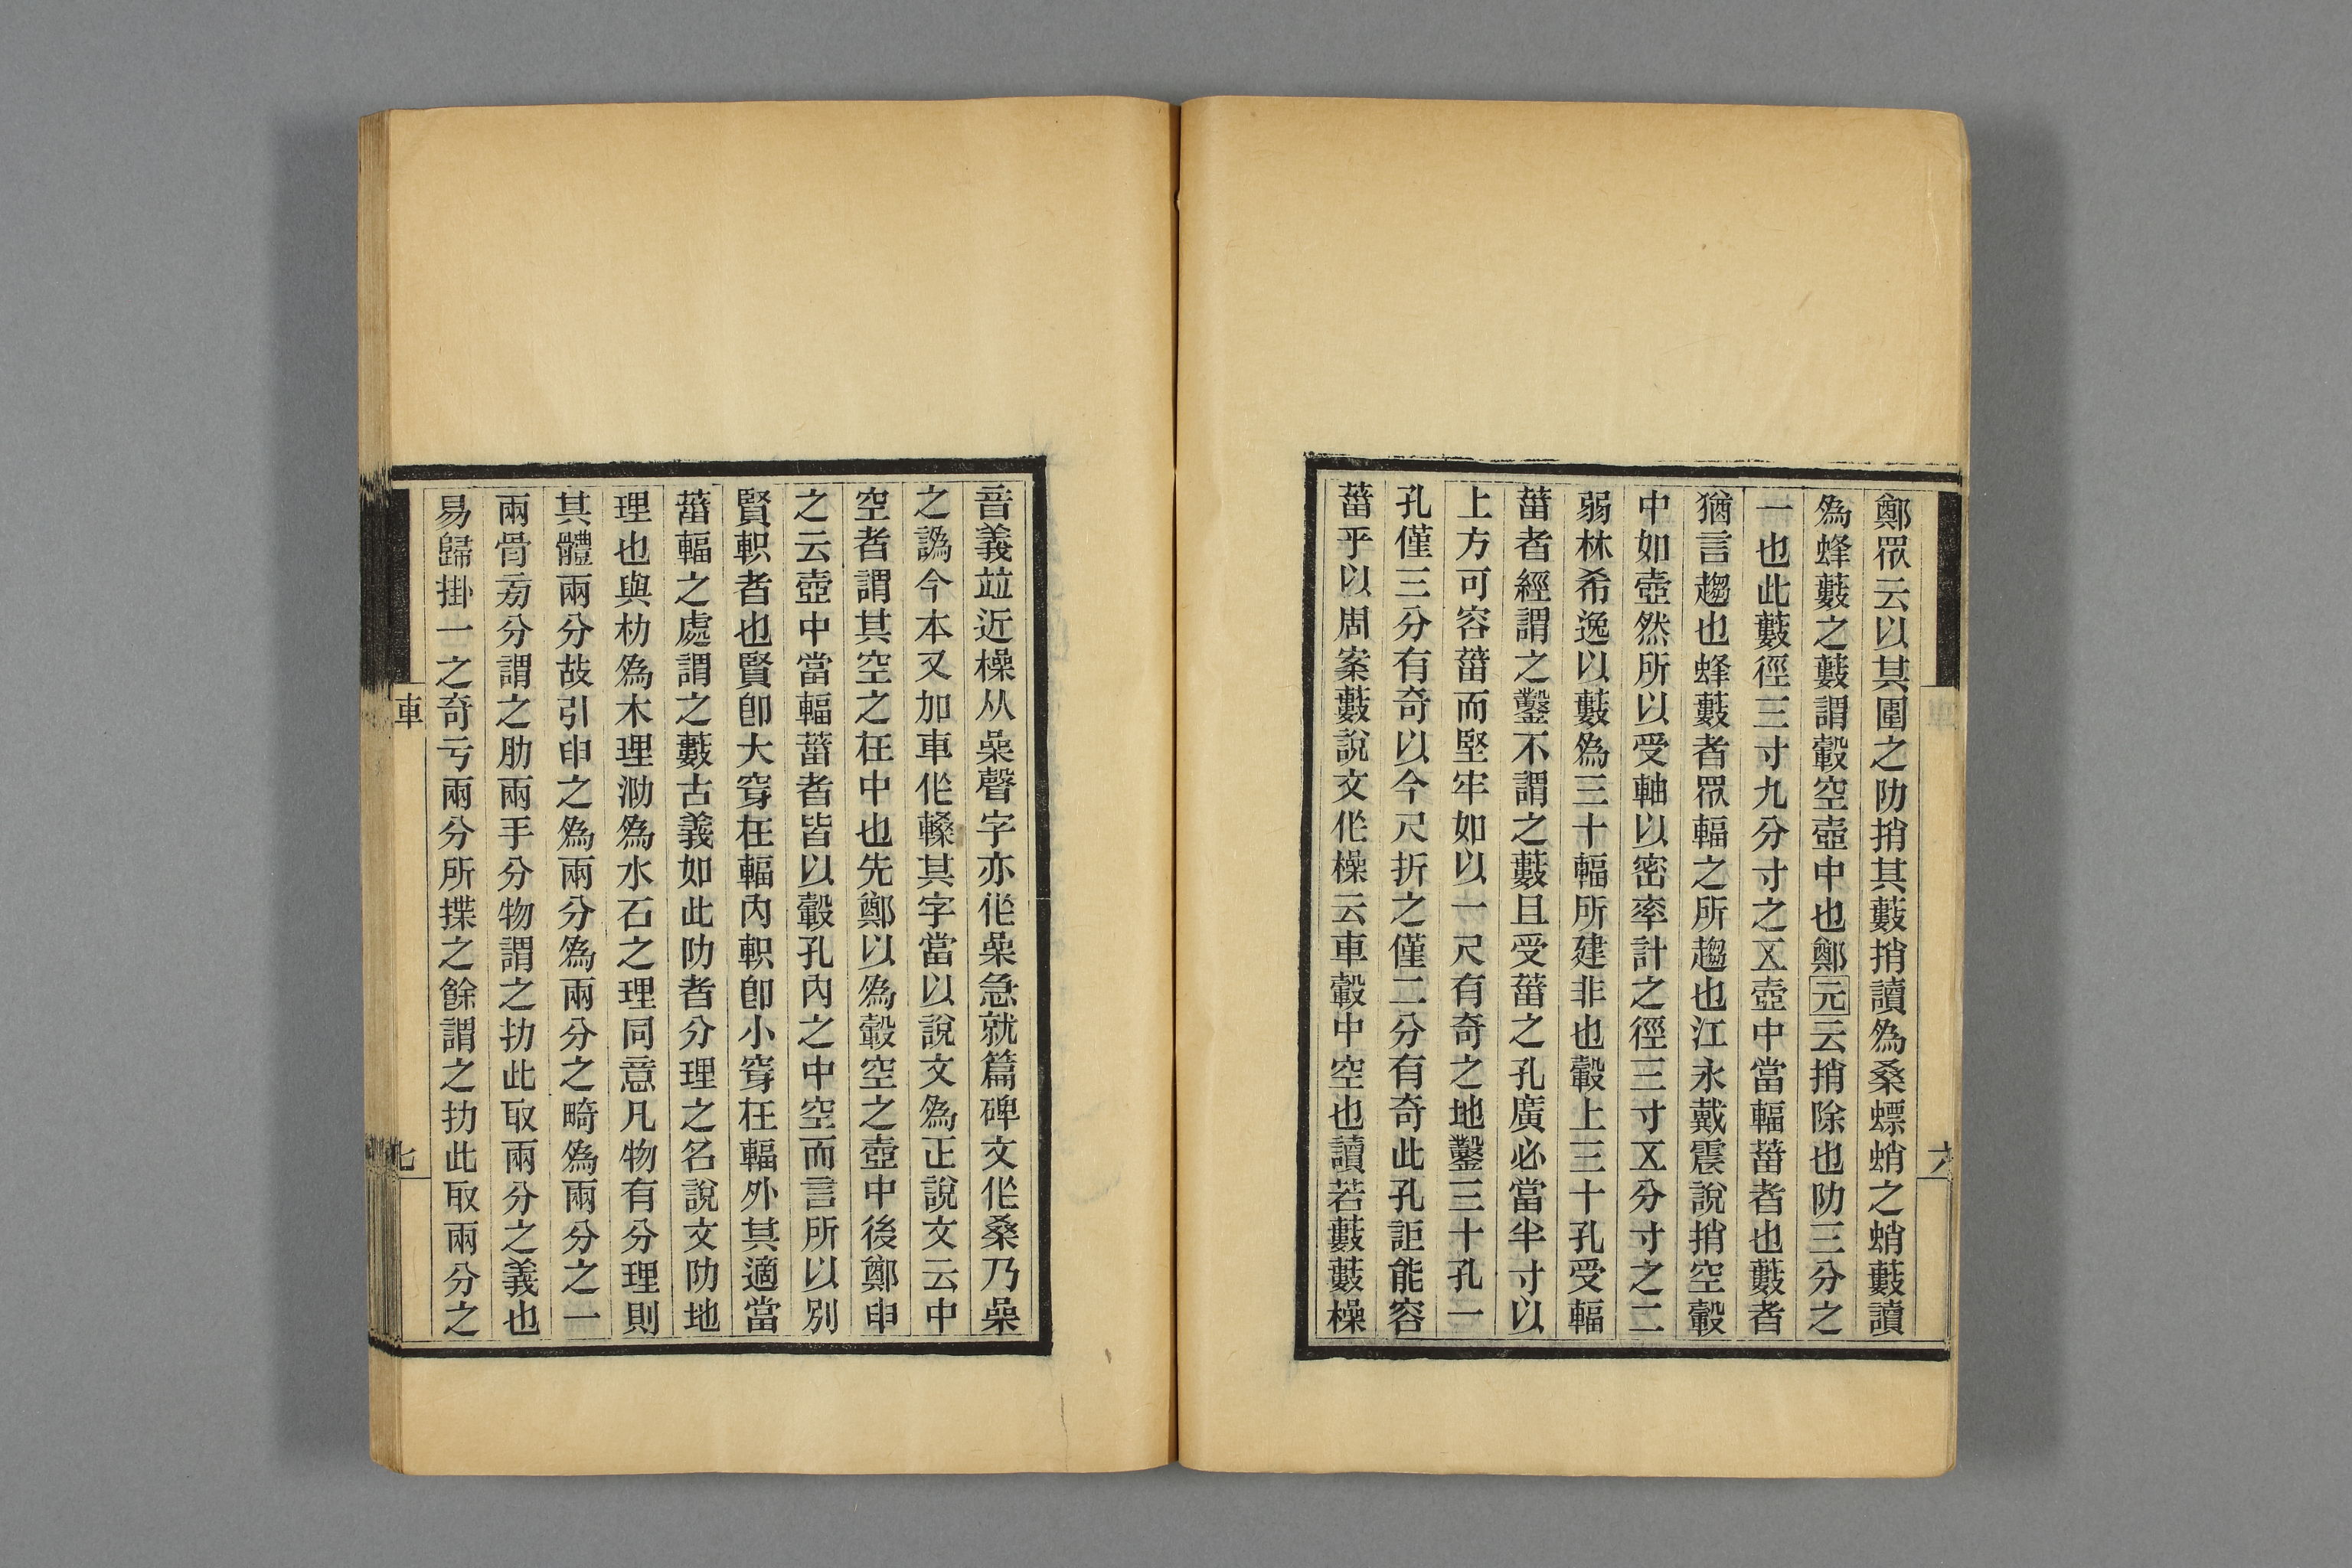 鄭眾云以其圍之阞捎其藪捎讀爲桑螵蛸之蛸藪讀
爲蜂藪之藪謂轂空壺中也鄭元云捎除也阞三分之
一也此藪徑三寸九分寸之五壺中當輻菑者也藪者
猶言趨也蜂藪者眾輻之所趨也江永戴震說捎空轂
中如壺然所以受軸以密率計之徑三寸五分寸之二
弱林希逸以藪爲三十輻所建非也轂上三十孔受輻
菑者經謂之鑿不謂之藪且受菑之孔廣必當半寸以
上方可容菑而堅牢如以一尺有奇之地鑿三十孔一
孔僅三分有奇以今尺折之僅二分有奇此孔詎能容
菑乎以周案藪說文作橾云車轂中空也讀若藪藪橾
六
音義竝近橾从喿聲字亦作喿急就篇碑文作桑乃喿
之譌今本又加車作轃其字當以說文爲正說文云中
空者謂其空之在中也先鄭以爲轂空之壺中後鄭申
之云壺中當輻菑者皆以轂孔內之中空而言所以別
賢軹者也賢卽大穿在輻內軹卽小穿在輻外其適當
菑輻之處謂之藪古義如此阞者分理之名說文阞地
理也與朸爲木理泐爲水石之理同意凡物有分理則
其體兩分故引申之爲兩分爲兩分之畸爲兩分之一
兩骨旁分謂之肋兩手分物謂之扐此取兩分之義也
易歸掛一之奇亏兩分所揲之餘謂之扐此取兩分之
車
七